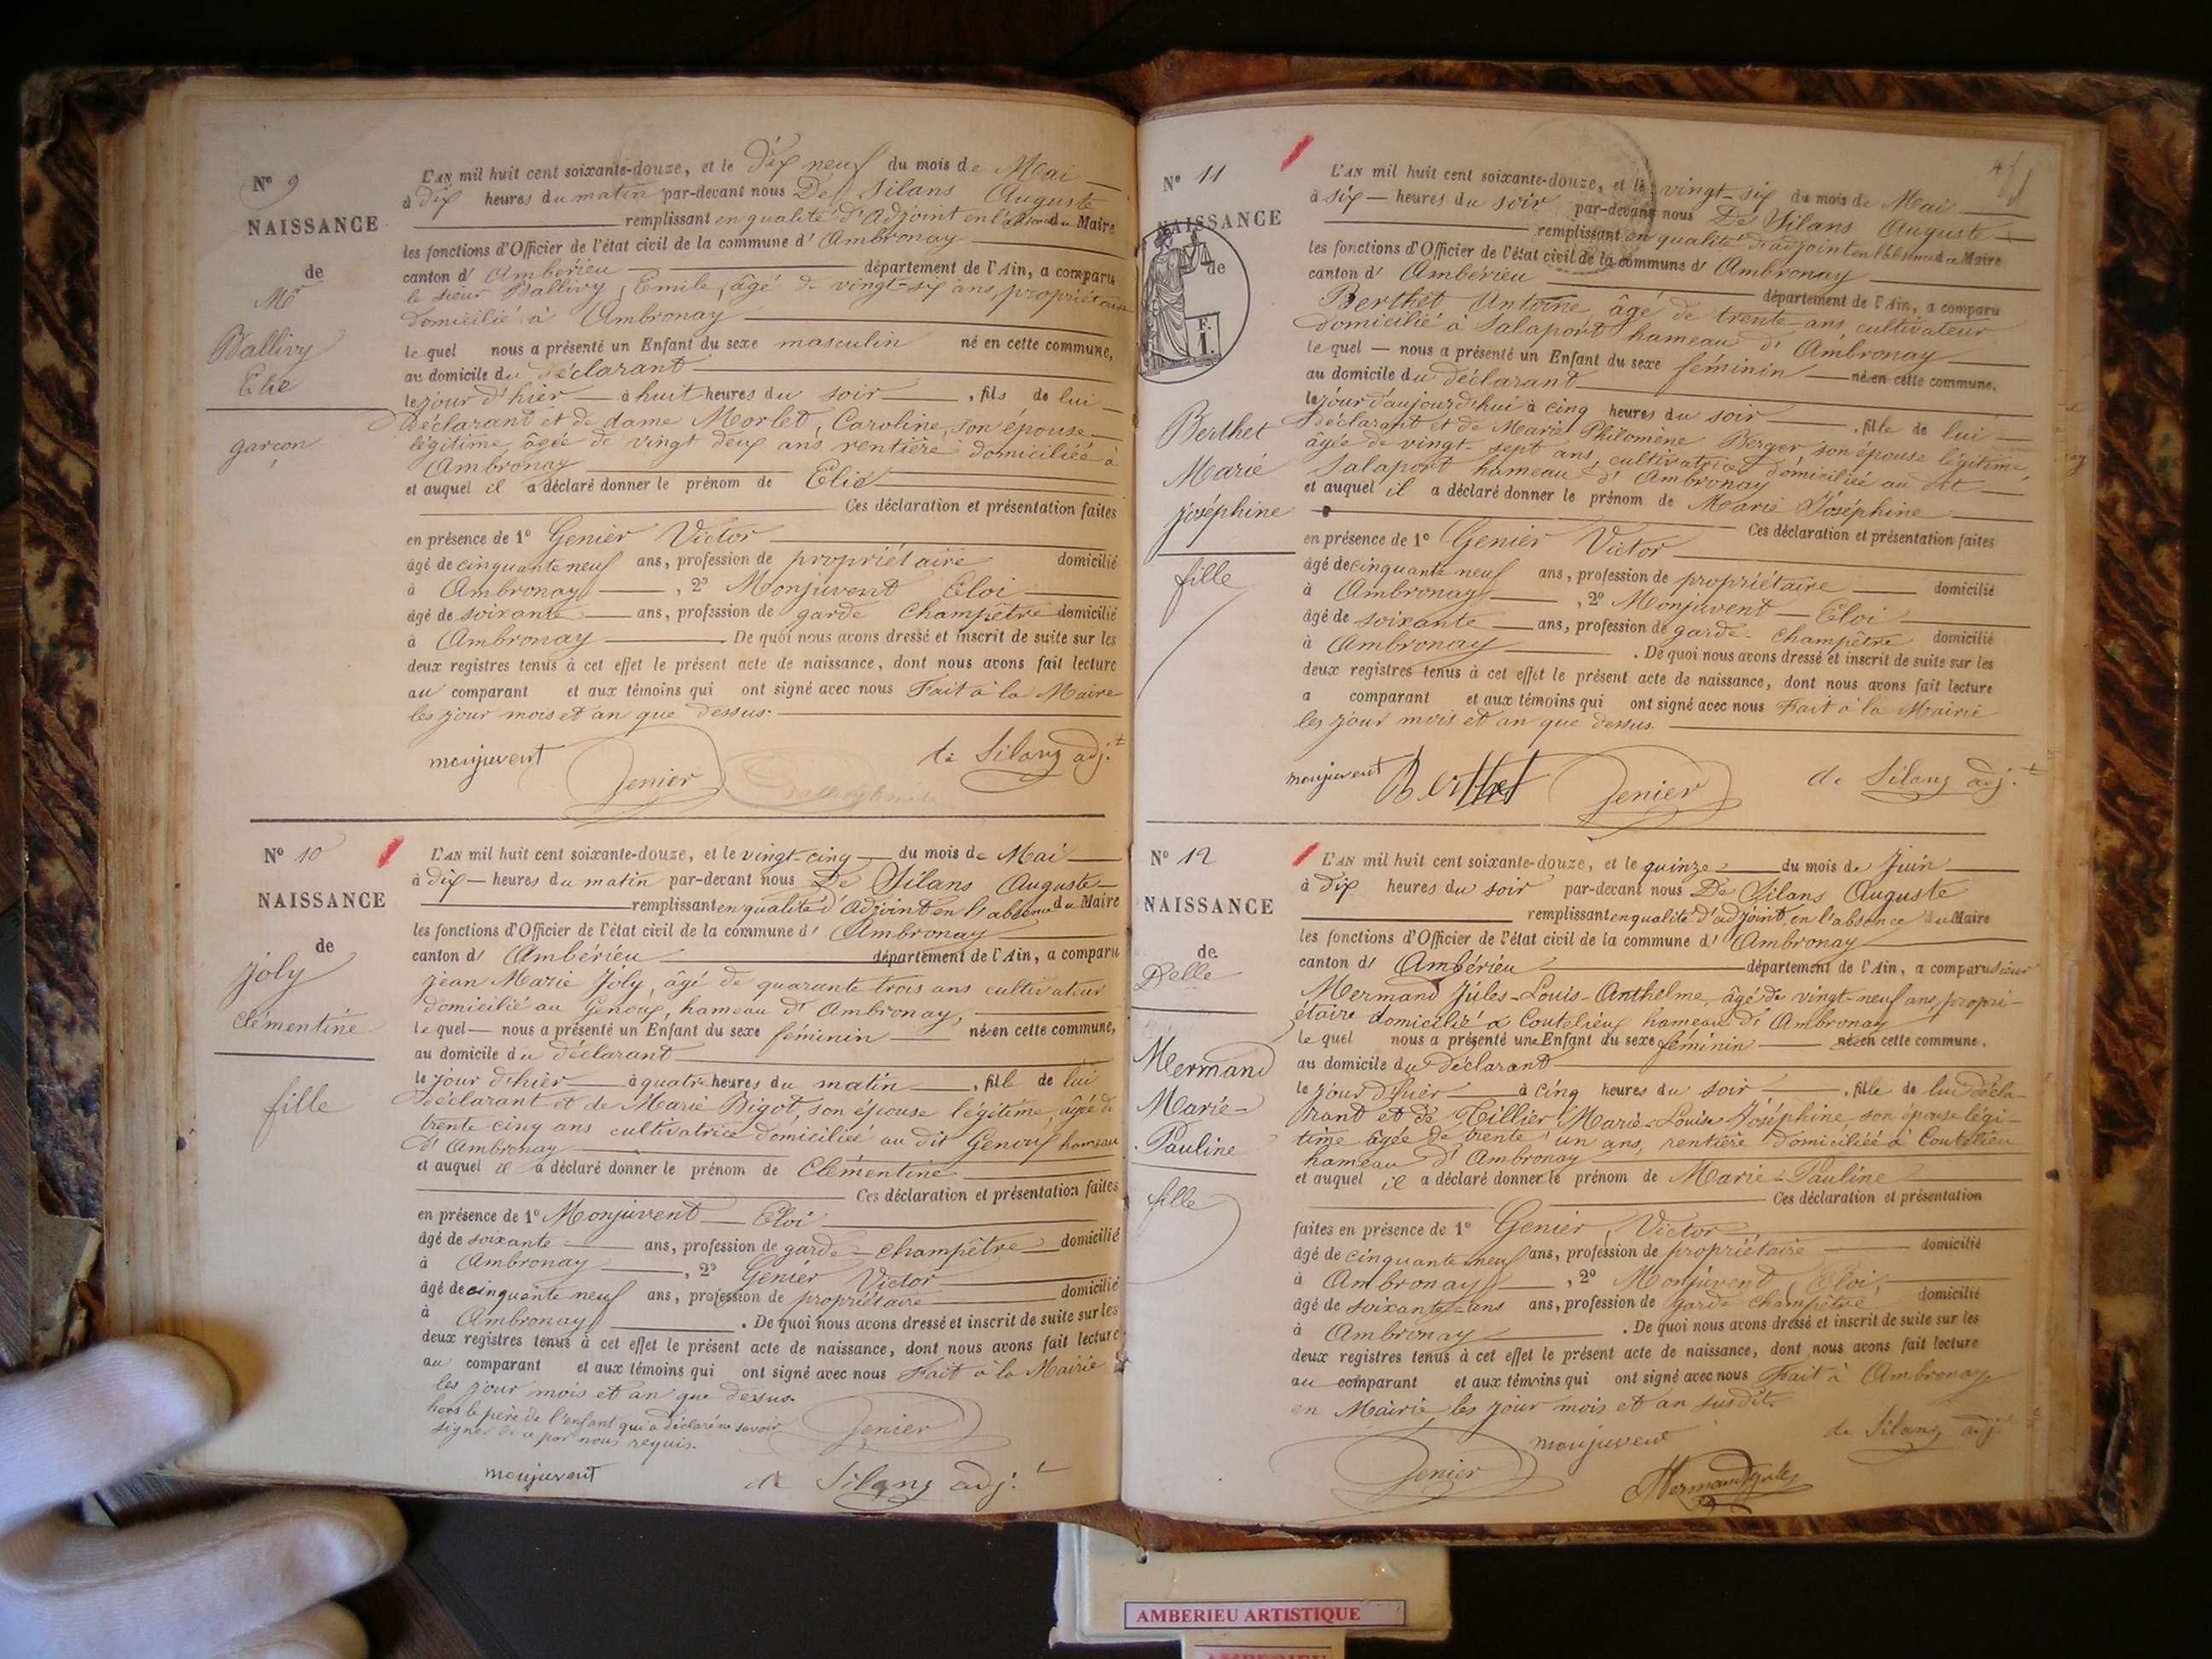 N° 9
NAISSANCE
de
Mr
Ballivy
Elie
garçon
L'AN mil huit cent soixante-douze, et le Dix neuf du mois de Mai
à Dix heures du matin par-devant nous De Silans Auguste
remplissant en qualité d'Adjoint en l'absence du Maire
les fonctions d'Officier de l'état civil de la commune d' Ambronay
canton d' Ambérieu département de l'Ain, a comparu
le sieur Ballivy, Emile, âgé de vingt-six ans, propriétaire
domicilié à Ambronay
le quel nous a présenté un Enfant du sexe masculin né en cette commune,
au domicile du déclarant
le jour d'hier à huit heures du soir, fils de lui
Déclarant et de dame Morlet, Caroline, son épouse
légitime, âgée de vingt deux ans rentière domiciliée à
Ambronay
et auquel il a déclaré donner le prénom de Elie
Ces déclaration et présentation faites
en présence de 1° Genier Victor
âgé de cinquante neuf ans, profession de propriétaire domicilié
à Ambronay, 2° Monjuvent Eloi
âgé de soixante ans, profession de garde champêtre domicilié
à Ambronay De quoi nous avons dressé et inscrit de suite sur les
deux registres tenus à cet effet le présent acte de naissance, dont nous avons fait lecture
au comparant et aux témoins qui ont signé avec nous Fait à la Maire
les jour mois et an que dessus.
monjuvent Genier de Silans adj.t
N° 10
NAISSANCE
de
Joly
Clémentine
fille
L'AN mil huit cent soixante-douze, et le vingt-cinq du mois de Mai
à dix heures du matin par-devant nous De Silans Auguste
remplissant en qualité d'Adjoint en l'absence du Maire
les fonctions d'Officier de l'état civil de la commune d' Ambronay
canton d' Ambérieu département de l'Ain, a comparu
Jean Marie Joly, âgé de quarante trois ans cultivateur
domicilié au Genoux, hameau d' Ambronay,
le quel nous a présenté un Enfant du sexe féminin née en cette commune,
au domicile du déclarant
le jour d'hier à quatre heures du matin, fille de lui
déclarant et de Marie Bigot, son épouse légitime, âgée de
trente cinq ans cultivatrice domiciliée au dit Genoux hameau
d' Ambronay
et auquel il a déclaré donner le prénom de Clémentine
Ces déclaration et présentation faites
en présence de 1° Monjuvent Eloi
âgé de soixante ans, profession de garde-champêtre domicilié
à Ambronay, 2° Genier Victor
âgé de cinquante neuf ans, profession de propriétaire domicilié
à Ambronay. De quoi nous avons dressé et inscrit de suite sur les
deux registres tenus à cet effet le présent acte de naissance, dont nous avons fait lecture
au comparant et aux témoins qui ont signé avec nous Fait à la Mairie
les jour mois et an que dessus.
hors le père de l'enfant qui a déclaré ne savoir
signer de ce par nous requis.
Genier
monjuvent de Silans adj.t
N° 11
NAISSANCE
de
F.
I.
Berthet
Marie
Joséphine
fille
L'AN mil huit cent soixante-douze, et le vingt-six du mois de Mai
à six heures du soir par-devant nous De Silans Auguste
remplissant en qualité d'adjoint en l'absence du Maire
les fonctions d'Officier de l'état civil de la commune d' Ambronay
canton d' Ambérieu département de l'Ain, a comparu
Berthet Antoine âgé de trente ans cultivateur
domicilié à Salaport hameau d' Ambronay
le quel nous a présenté un Enfant du sexe féminin née en cette commune,
au domicile du déclarant
le jour d'aujourd'hui à cinq heures du soir, fille de lui
déclarant et de Marie Philomène Berger son épouse légitime,
âgée de vingt-sept ans, cultivatrice domiciliée au dit
Salaport hameau d' Ambronay
et auquel il a déclaré donner le prénom de Marie Joséphine
Ces déclaration et présentation faites
en présence de 1° Genier Victor
âgé de cinquante neuf ans, profession de propriétaire domicilié
à Ambronay, 2° Monjuvent Eloi
âgé de soixante ans, profession de garde-champêtre domicilié
à Ambronay. De quoi nous avons dressé et inscrit de suite sur les
deux registres tenus à cet effet le présent acte de naissance, dont nous avons fait lecture
a comparant et aux témoins qui ont signé avec nous Fait à la Mairie
les jour mois et an que dessus.
monjuvent Berthet Genier de Silans adj.t
N° 12
NAISSANCE
de
Delle
Mermand
Marie-
Pauline
fille
L'AN mil huit cent soixante-douze, et le quinze du mois de Juin
à dix heures du soir par-devant nous De Silans Auguste
remplissant en qualité d'adjoint, en l'absence du Maire
les fonctions d'Officier de l'état civil de la commune d' Ambronay
canton d' Ambérieu département de l'Ain, a comparu sieur
Mermand Jules-Louis-Anthelme, âgé de vingt-neuf ans, propri-
étaire domicilié à Coutelieux hameau d' Ambronay
le quel nous a présenté une Enfant du sexe féminin née en cette commune,
au domicile du Déclarant
le jour d'hier à cinq heures du soir, fille de lui décla-
rant et de Tillier Marie-Louise Joséphine son épouse légi-
time âgée de trente un ans, rentière domiciliée à Coutelieu
hameau d' Ambronay
et auquel il a déclaré donner le prénom de Marie-Pauline
Ces déclaration et présentation
faites en présence de 1° Genier Victor
âgé de cinquante neuf ans, profession de propriétaire domicilié
à Ambronay, 2° Monjuvent Eloi,
âgé de soixante-ans ans, profession de garde champêtre domicilié
à Ambronay. De quoi nous avons dressé et inscrit de suite sur les
deux registres tenus à cet effet le présent acte de naissance, dont nous avons fait lecture
au comparant et aux témoins qui ont signé avec nous Fait à Ambronay
en Mairie les jour mois et an susdit.
monjuvent de Silans adj.t
Genier Mermand Jules
AMBERIEU ARTISTIQUE